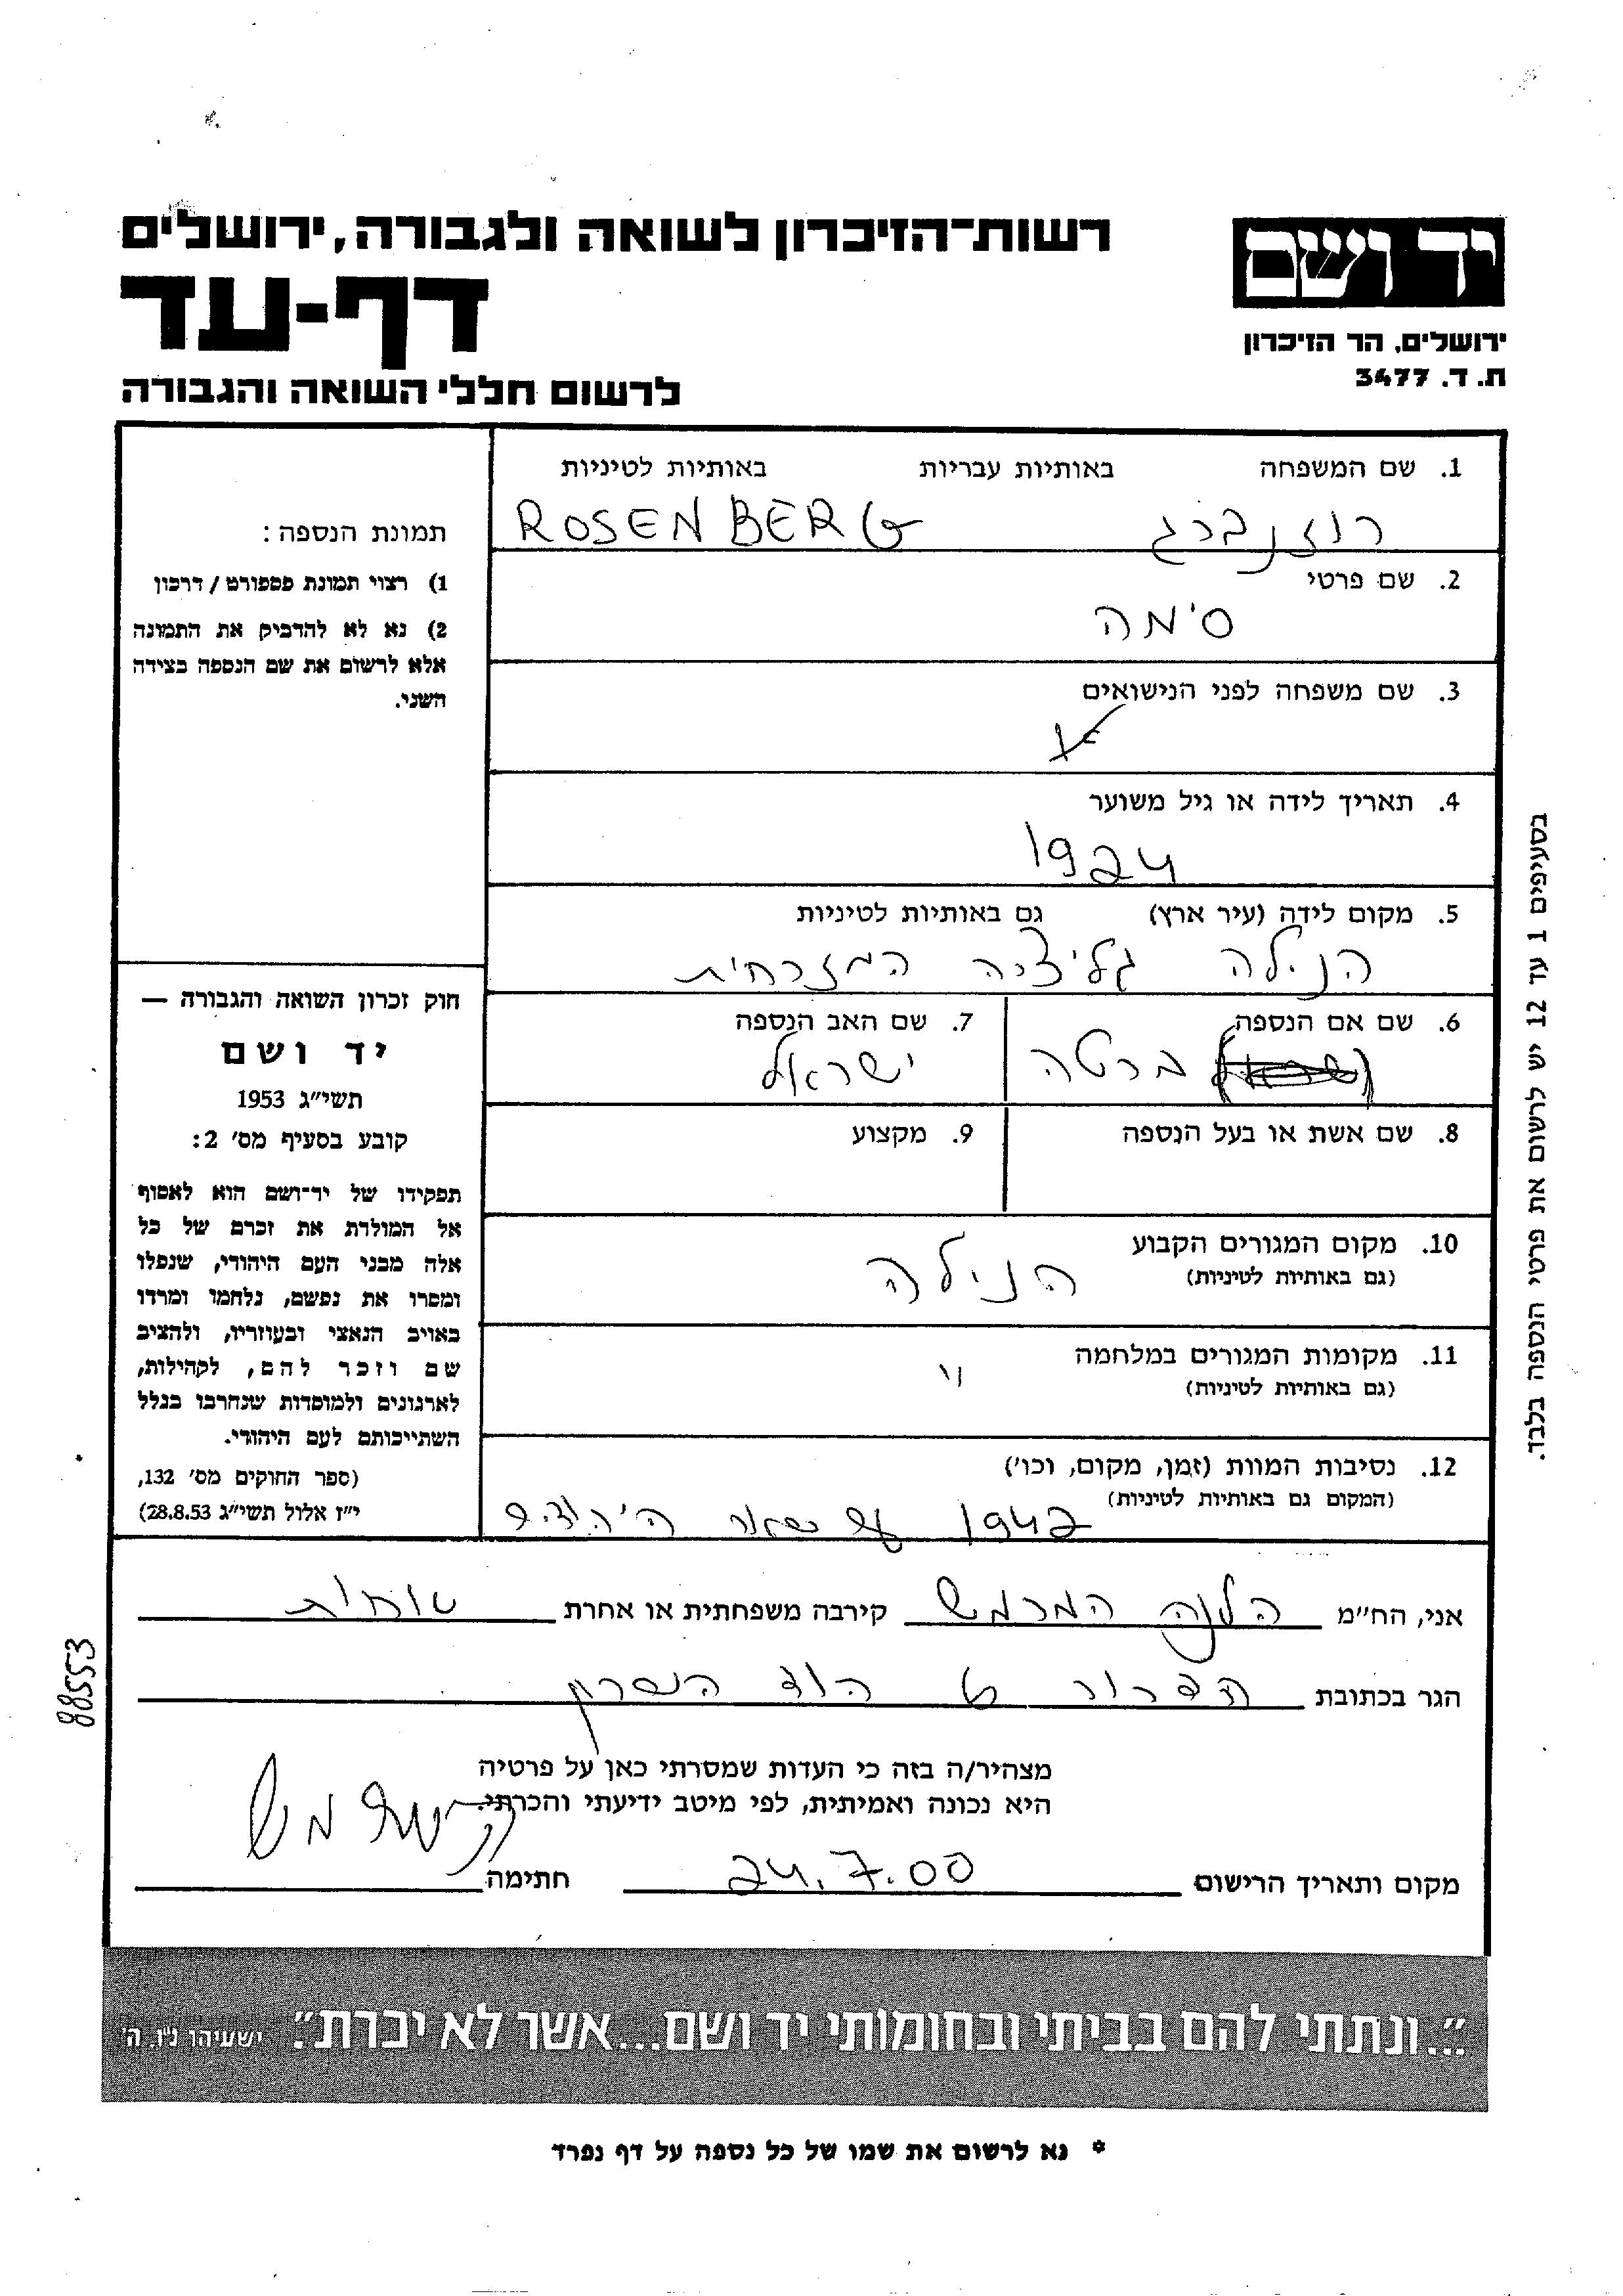 רשות־הזיכרון לשואה ולגבורה, ירושלים
יד ושם
דף-עד
ירושלים, הר הזיכרון
ת. ד. 3477
לרשום חללי השואה והגבורה
1. שם המשפחה באותיות עבריות באותיות לטיניות
רוזנברג ROSENBERG
2. שם פרטי
סימה
3. שם משפחה לפני הנישואים
4. תאריך לידה או גיל משוער
1924
5. מקום לידה (עיר ארץ) גם באותיות לטיניות
הנילה גליציה המזרחית
6. שם אם הנספה
ברטה
7. שם האב הנספה
ישראל
8. שם אשת או בעל הנספה
9. מקצוע
10. מקום המגורים הקבוע
(גם באותיות לטיניות)
הנילה
11. מקומות המגורים במלחמה
(גם באותיות לטיניות)
"
12. נסיבות המוות (זמן, מקום, וכו')
(המקום גם באותיות לטיניות)
1942 עם שאר היהודים
תמונת הנספה:
1) רצוי תמונת פספורט / דרכון
2) נא לא להדביק את התמונה
אלא לרשום את שם הנספה בצידה
השני.
חוק זכרון השואה והגבורה —
יד ושם
תשי"ג 1953
קובע בסעיף מס' 2:
תפקידו של יד־ושם הוא לאסוף
אל המולדת את זכרם של כל
אלה מבני העם היהודי, שנפלו
ומסרו את נפשם, נלחמו ומרדו
באויב הנאצי ובעוזריו, ולהציב
שם וזכר להם, לקהילות,
לארגונים ולמוסדות שנחרבו בגלל
השתייכותם לעם היהודי.
(ספר החוקים מס' 132,
י"ז אלול תשי"ג 28.8.53)
בסעיפים 1 עד 12 יש לרשום את פרטי הנספה בלבד.
אני, הח"מ הלנה קירבה משפחתית או אחרת אחות
הגר בכתובת הדרור 6 הוד השרון
מצהיר/ה בזה כי העדות שמסרתי כאן על פרטיה
היא נכונה ואמיתית, לפי מיטב ידיעתי והכרתי.
מקום ותאריך הרישום 24.7.00 חתימה
88553
"...ונתתי להם בביתי ובחומותי יד ושם...אשר לא יכרת". ישעיהו נ"ו, ה'
* נא לרשום את שמו של כל נספה על דף נפרד